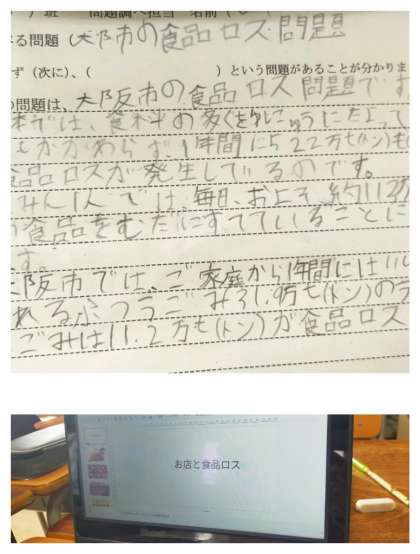 班 問題調べ担当 名前(
べる問題(大阪市の食品ロス問題
ず(次に)、( )という問題があることが分かりま
の問題は、大阪市の食品ロス問題です
本では、食料の多くを
もかかわらず、1年間に522万t(トン)も
食品ロスが発生しているのです。
1人では、毎日、およそ、約113
食品をむだにすてていることに
す
大阪市では、ご家庭から1年間には
れるふつうごみ31.9万t(トン)の
ごみは11.2万t(トン)が食品ロス
お店と食品ロス